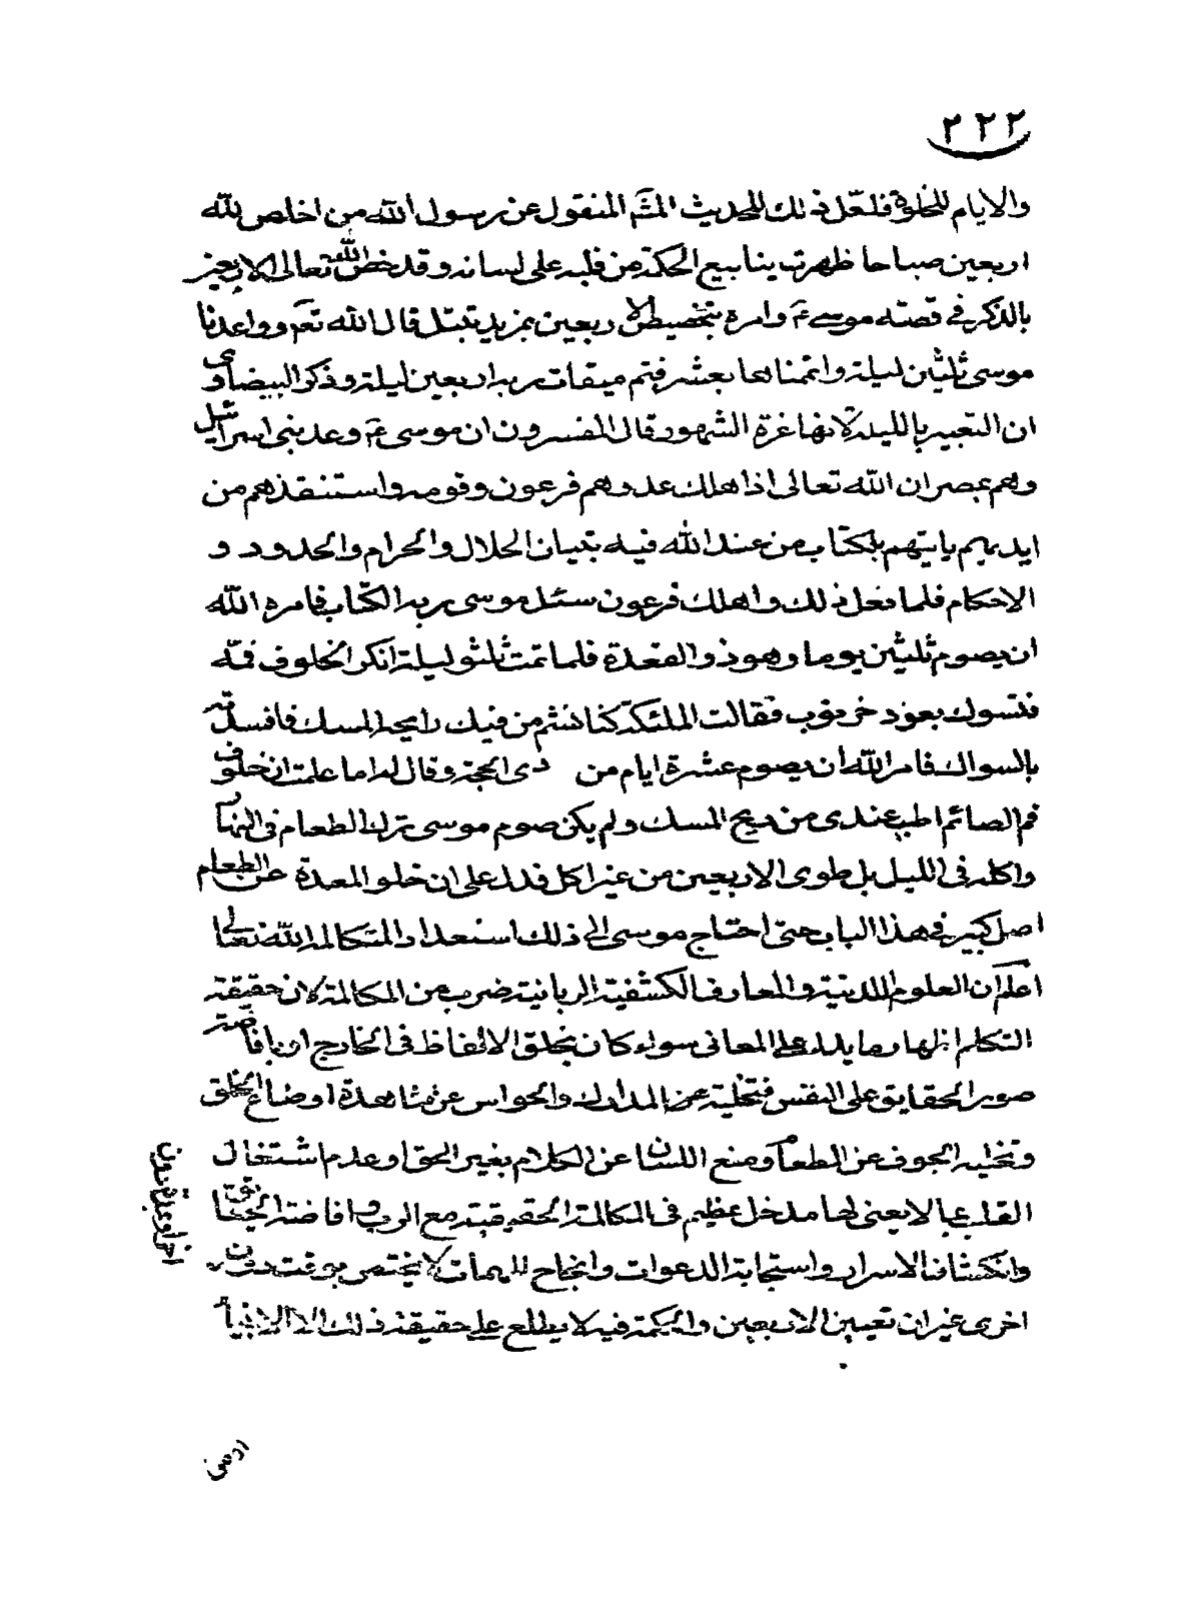 ٢٢٢
والايام للخلوة فلعل ذلك للحديث المنقول عن رسول الله من اخلص لله
اربعين صباحا ظهرت ينابيع الحكمة من قلبه على لسانه وقد خص الله تعالى الاربعين
بالذكر في قصته موسى ع وامره بتخصيص الاربعين بمزيد تبتل قال الله تع وواعدنا
موسى ثلثين ليلة واتممناها بعشر فتم ميقات ربه اربعين ليلة وذكر البيضاوي
ان التعبير بالليلة لانها غرة الشهور وقال المفسرون ان موسى ع وعد بني اسرائيل
وهم بمصر ان الله تعالى اذا هلك عدوهم فرعون وقومه واستنقذهم من
ايديهم ياتيهم بكتاب من عند الله فيه تبيان الحلال والحرام والحدود و
الاحكام فلما فعل ذلك واهلك فرعون سئل موسى ربه الكتاب فامره الله
ان يصوم ثلثين يوما وهو ذو القعدة فلما تمت ثلثون ليلة انكر الخلوف فمه
فتسوك بعود خرنوب فقالت الملئكة كنا نشم من فيك رايحة المسك فافسدته
بالسواك فامر الله ان يصوم عشرة ايام من ذى الحجة وقال له اما علمت ان خلوف
فم الصائم اطيب عندى من ريح المسك ولم يكن صوم موسى ترك الطعام فى النهار
واكله فى الليل بل طوى الاربعين من غير اكل فدل على ان خلو المعدة عن الطعام
اصل كبير فى هذا الباب حتى احتاج موسى الى ذلك استعدادا لمكالمة الله تعالى
اعلم ان العلوم اللدنية والمعارف الكشفية الربانية ضرب من المكالمة لان حقيقة
التكلم اظهار ما يدل على المعانى سواء كان بخلق الالفاظ فى الخارج او بافاضة
صور الحقايق على النفس فتخلية عن المدارك والحواس عن مشاهدة اوضاع الخلق
وتخليه الجوف عن الطعام ومنع اللسان عن الكلام بغير الحق وعدم اشتغال
القلب بما لا يعنى لها مدخل عظيم فى المكالمة الحقيقية مع الرب وافاضة الحقايق
وانكشاف الاسرار واستجابة الدعوات وانجاح المهمات لا يختص بوقت دون
اخرى غير ان تعيين الاربعين والحكمة فيه لا يطلع على حقيقة ذلك الا الانبياء